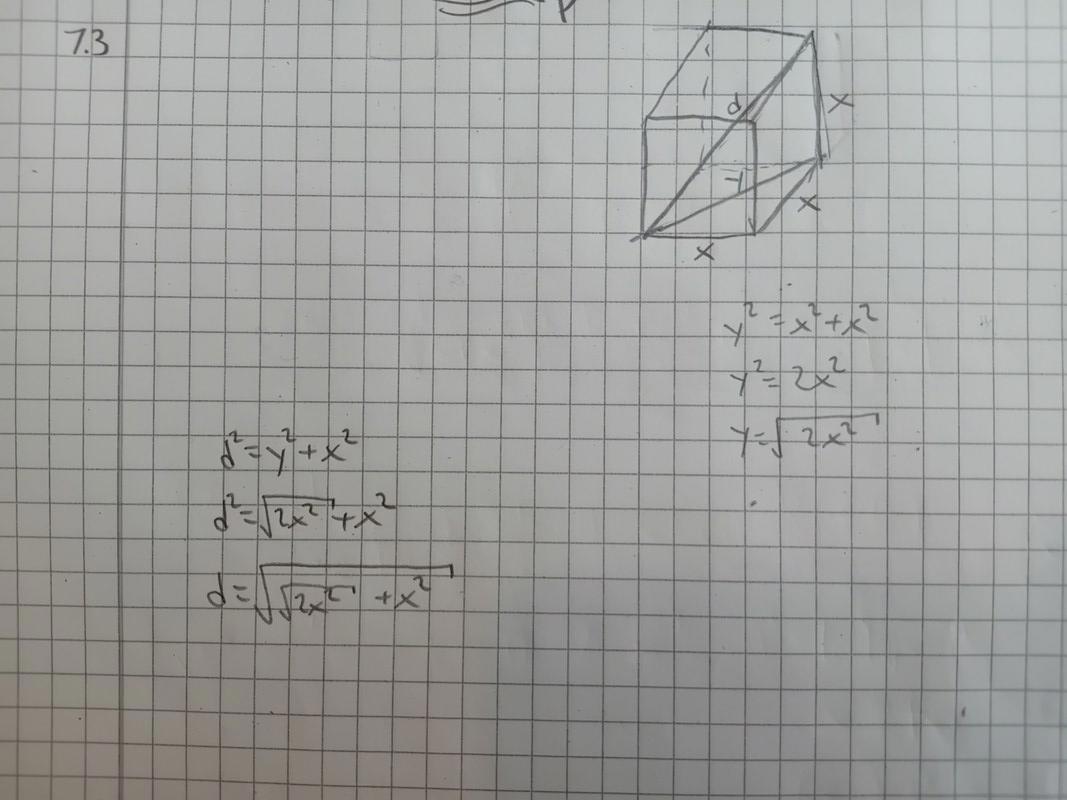 7.3
d
x
x
x
y² = x² + x²
y² = 2x²
y = √(2x²)
d² = y² + x²
d² = √(2x²) + x²
d = √(√(2x²) + x²)